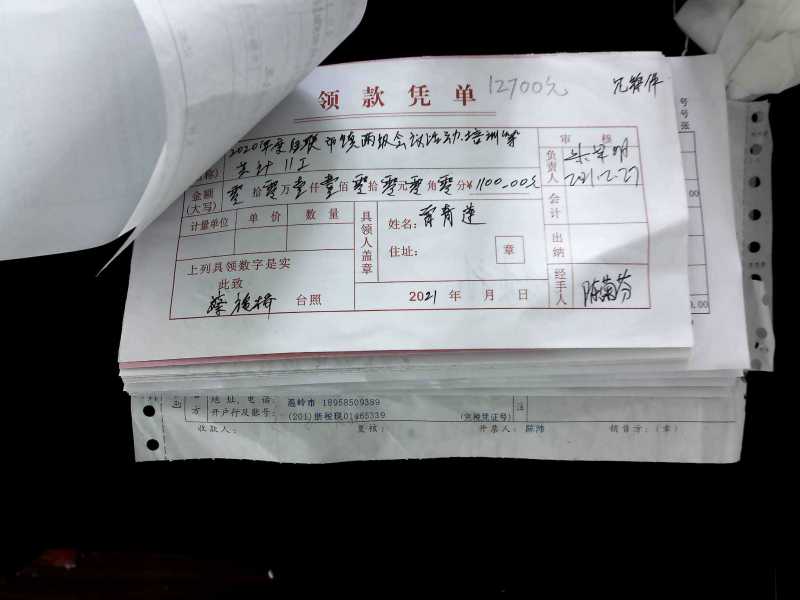 领款凭单 12700元
2020年度妇联 镇两级会议活动.培训等
名称) 共计11工
金额(大写) 零拾零万壹仟壹佰零拾零元零角零分¥1100.00元
审核
负责人
2021.2.27
会计
出纳
经手人 陈菊芬
计量单位 单价 数量
具领人盖章
姓名: 青莲
住址: 章
上列具领数字是实
此致
台照
2021年 月 日
号
号
张
0.00
方
地址,电话: 温岭市 18958509389
开户行及账号: (201)浙税联01465339
(完税凭证号)
注
收款人: 复核: 开票人: 陈沛 销售方:(章)